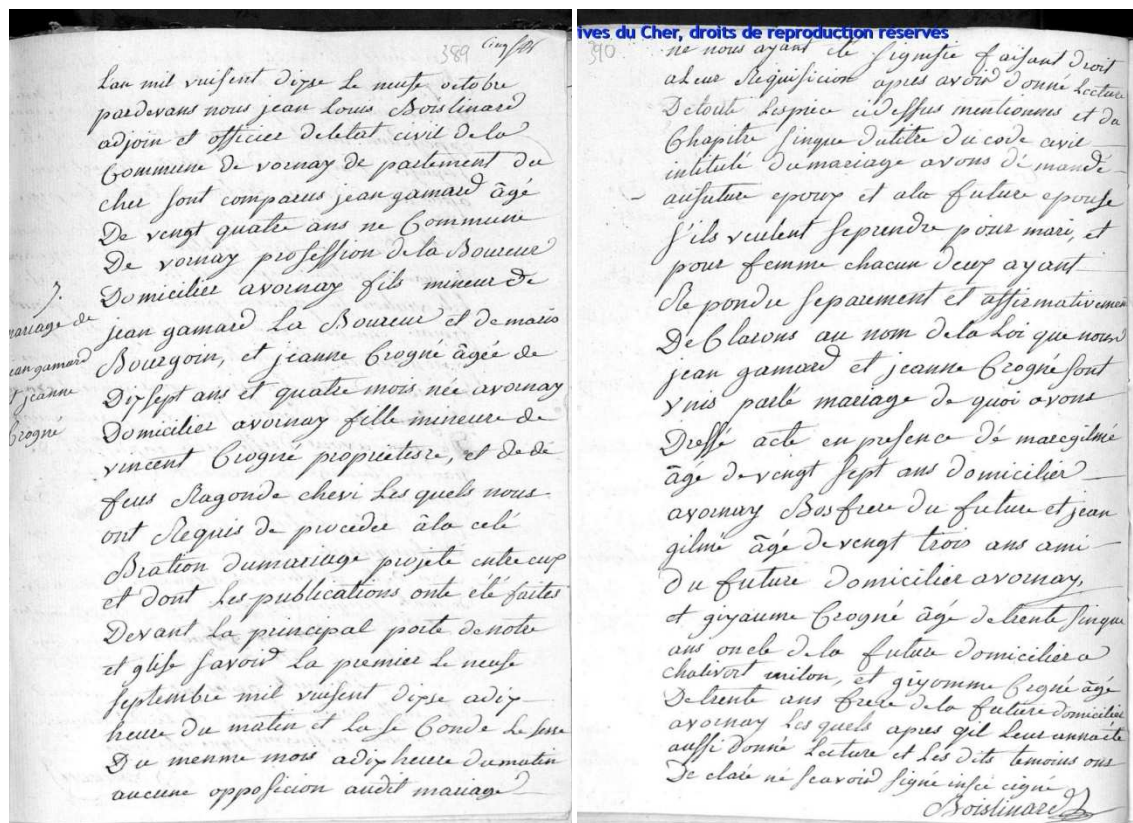 389
Lan mil vuisent dixse Le neufe octobre
pardevans nous jean Louis Boistinard
adjoin et officier deletat civil de la
Commune de vornay de partement du
cher sont comparus jean gamard âgé
De vengt quatre ans ne Commune
De vornay profession de la Boureur
Domicilier avornay fils mineur de
jean gamard La Boureur et de marie
Bourgoin, et jeanne Crogné âgée de
Dixsept ans et quatre mois née avornay
Domicilier avornay fille mineure de
vincent Crogné proprietere, et de de
feus Ragonde chevi Les quels nous
ont Requis de proceder âla celé
Bration dumariage projete entre eux
et dont Les publications onte été faites
Devant La principal porte denotre
et glise savoir La premier Le neufe
septembre mil vuisent dixse adix
heure du matin et La se Conde Le sense
Du menme mois adix heure dumatin
aucune opposicion audit mariage
7.
mariage de
jean gamard
et jeanne
Crogné
ives du Cher, droits de reproduction réservés
390
ne nous ayant ete signifie faisant droit
aLeur Requisicion apres avoir donné Lecture
De toute Lespice cidessus mentionnes et du
Chapitre sinque dutitre du code civil
intitulé dumariage avons dé mandé
aufuture epoux et ala future epouse
s'ils veulent seprendre pour mari, et
pour femme chacun deux ayant
Re pondu separement et affirmativement
De Clarons au nom dela Loi que nous
jean gamard et jeanne Crogné sont
vnis parle mariage de quoi avons
Dressé acte en presence dé marcgilmé
âgé de vengt sept ans domicilier
avornay Bosfrere du future et jean
gilmé âgé de vengt trois ans ami
du future Domicilier avornay,
et giyaume Crogné âgé detrente sinque
ans oncle dela future domicilier a
chalivoit milon, et giyomme Crogné âgé
Detrente ans frere dela future domicilier
avornay Les quels apres qil Leur anna ete
aussi donné Lecture et Les dits temoins ons
De claré né scavoir signé
Boistinard